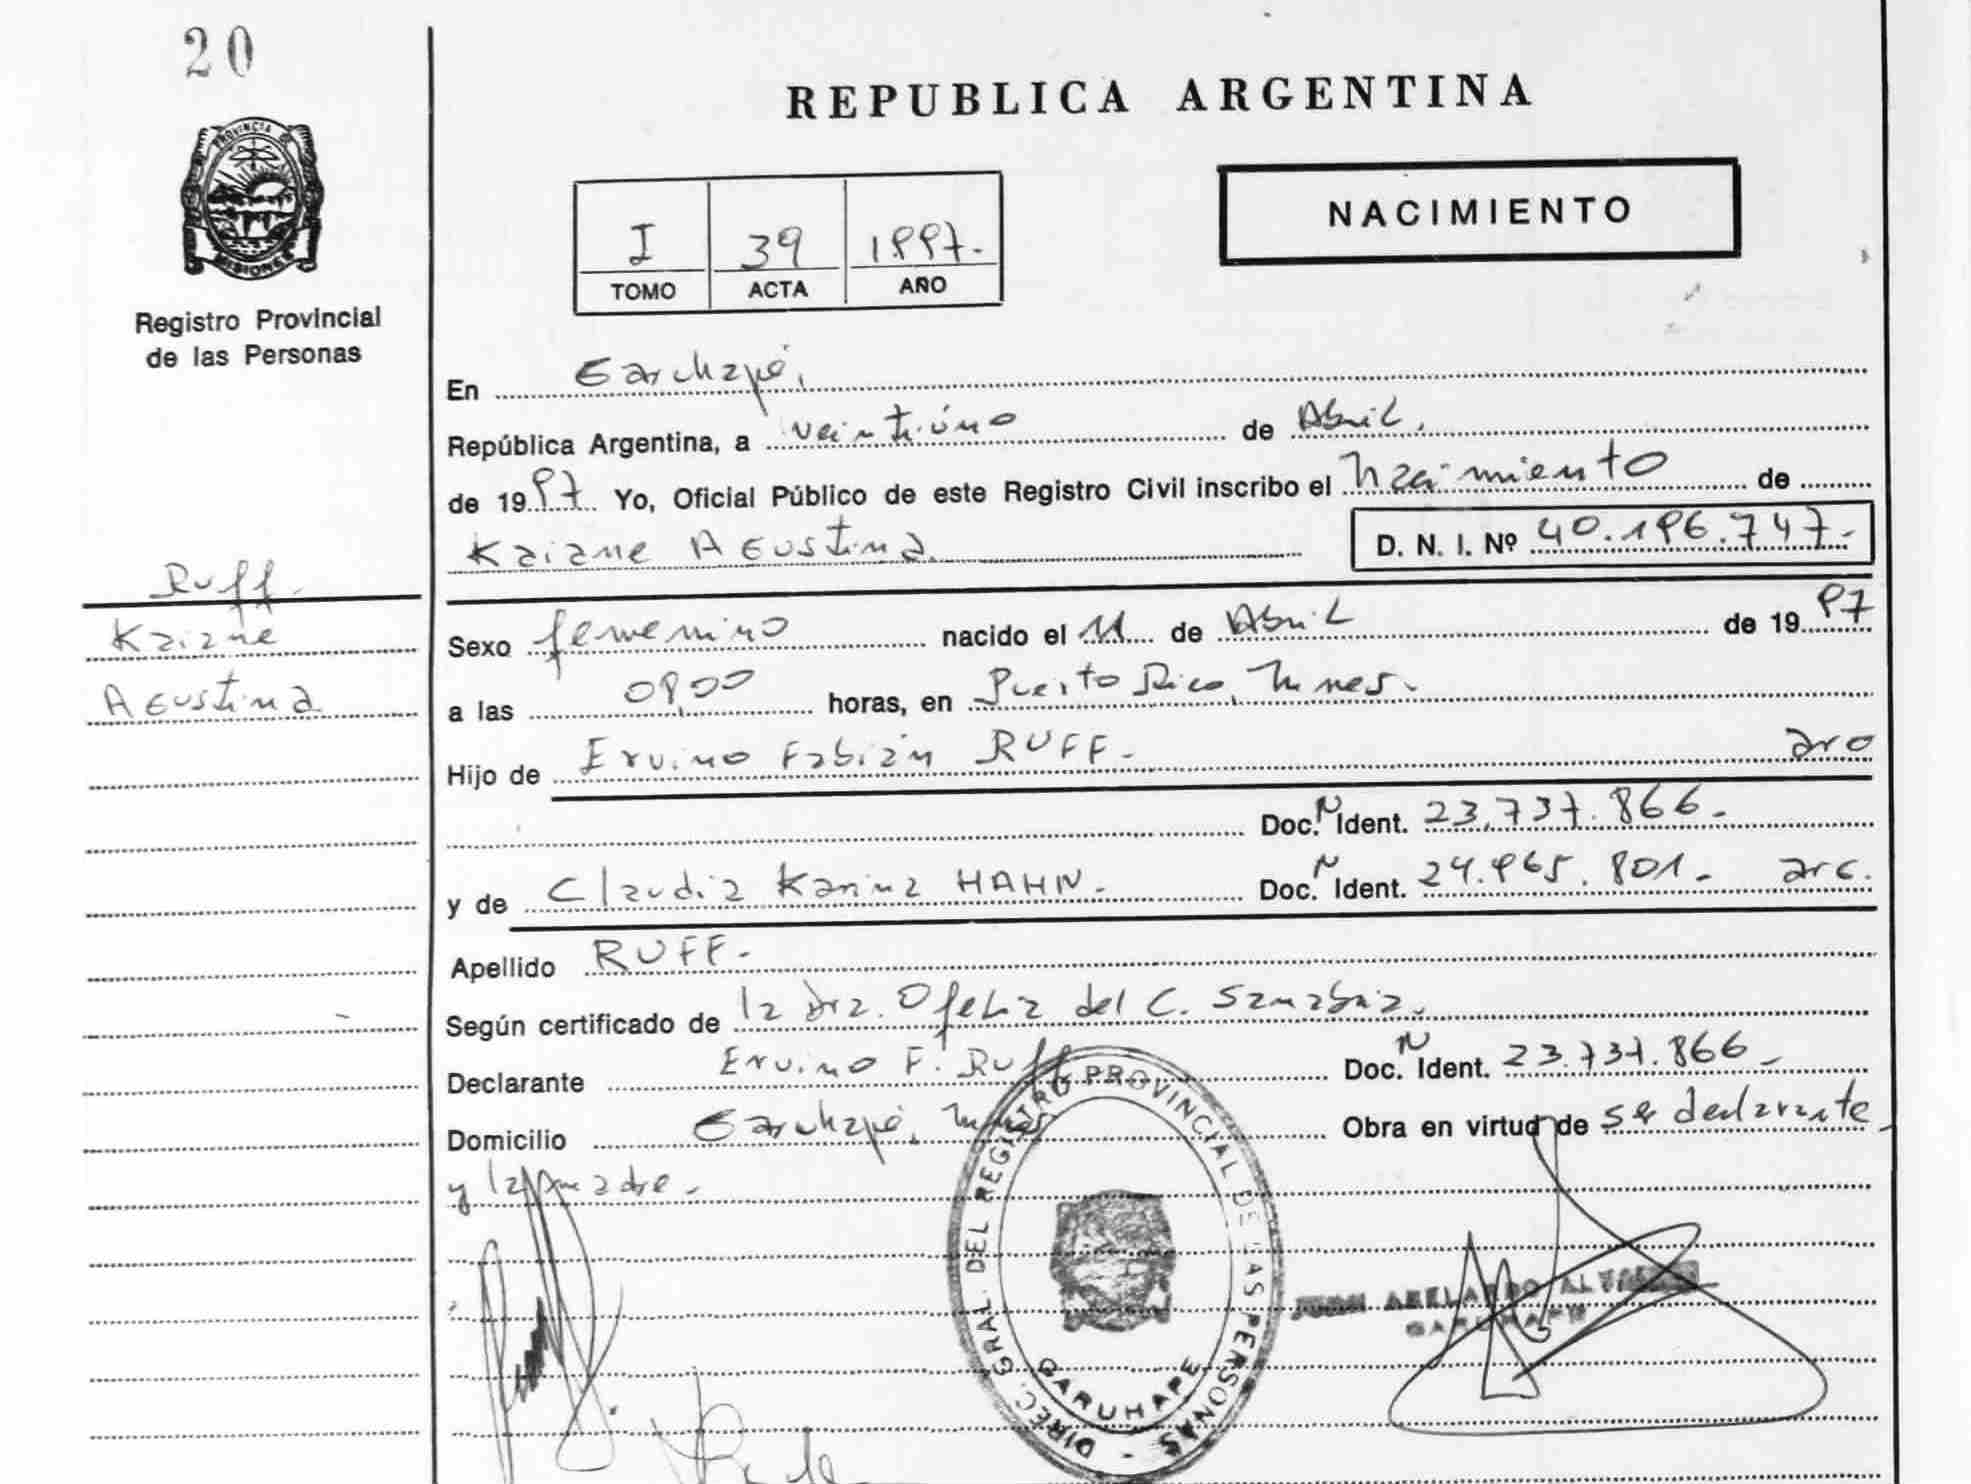 20
PROVINCIA DE
MISIONES
Registro Provincial
de las Personas
REPUBLICA ARGENTINA
I 39 1997.-
TOMO ACTA AÑO
NACIMIENTO
En Garuhapé,
República Argentina, a veintiúno de Abril,
de 1997 Yo, Oficial Público de este Registro Civil inscribo el nacimiento de
Kaiane Agustina. D. N. I. Nº 40.196.747.-
Ruff.
Kaiane
Agustina
Sexo femenino nacido el 11 de Abril de 1997
a las horas, en Puerto Rico, Mnes.
Hijo de Ervino Fabián RUFF.- aro
Doc. N Ident. 23.737.866.-
y de Claudia Karina HAHN.- Doc. N Ident. 24.965.801.- arg.
Apellido RUFF.-
Según certificado de la Dra. Ofelia del C. Sanabria.
Declarante Ervino F. Ruff Doc. N Ident. 23.737.866.-
Domicilio Garuhapé, Mnes Obra en virtud de ser declarante
y la madre.-
DIREC. GRAL. DEL REGISTRO PROVINCIAL DE LAS PERSONAS -
GARUHAPE
JUAN ABELARDO
GARUHAPE